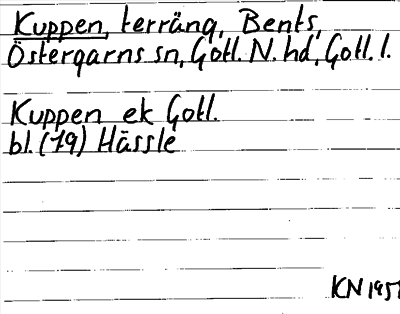 Kuppen, terräng, Bents,
Östergarns sn, Gotl. N. hd, Gotl. l.
Kuppen ek Gotl.
bl. (79) Hässle
KN 1951